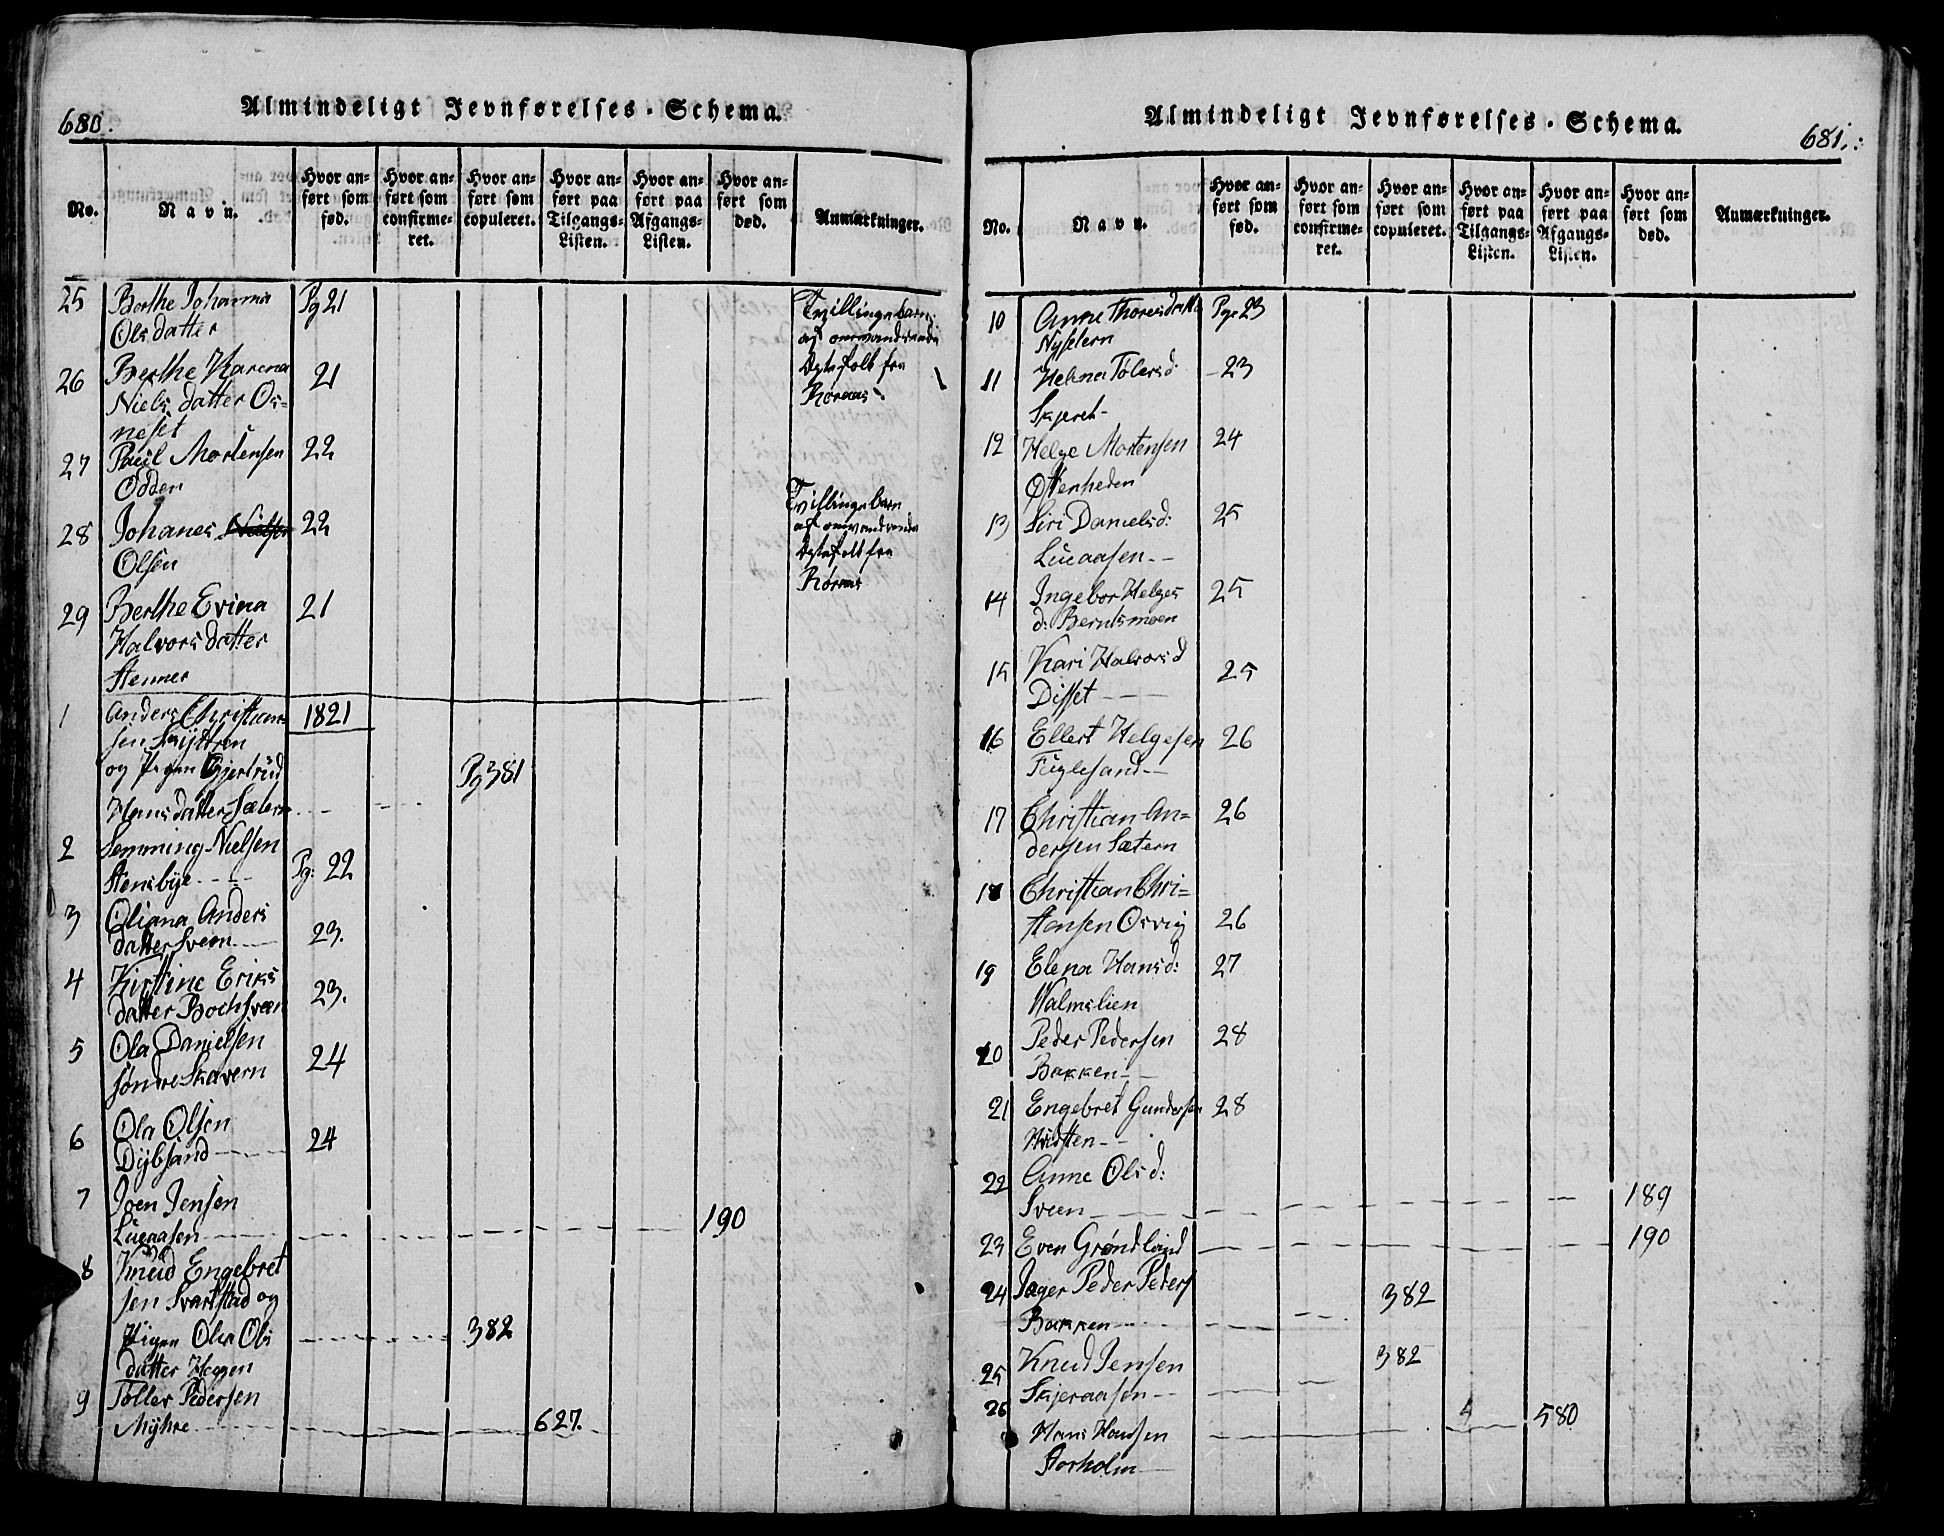 680.
Almindeligt Jevnførelses-Schema.
No.
Navn.
Hvor an=
ført som
fød.
Hvor an=
ført som
confirme=
ret.
Hvor an=
ført som
copuleret.
Hvor an=
ført paa
Tilgangs=
Listen.
Hvor an=
ført paa
Afgangs=
Listen.
Hvor an=
ført som
død.
Anmærkninger.
25 Berthe Johanna Pg 21 Tvillingebarn
Olsdatter af omvandrende
26 Berthe Karena 21 folk fra
Niels datter Os= Røraas
neset
27 Paul Mortensen 22
Odden
28 Johanes Nielsen 22 Tvillingebarn
Olsen af omvandrende
folk fra
Røraas
29 Berthe Evina 21
Halvorsdatter
Stenner
1 Anders Christian= 1821
sen
og Pigen Gjertrud Pg 381
Hansdatter Sætern
2 Semming Nielsen
Stensbye Pg: 22
3 Oliana Anders
datter Sveen 23.
4 Kirstine Eriks
datter Bochsveen 23.
5 Ola Danielsen
søndre Skavern 24
6 Ola Olsen
Dybsand 24
7 Joen Jensen
Lucaasen 190
8 Knud Engebret
sen Svartstad og
Pigen Olea Ols 382
datter Haggen
9 Toller Pedersen
Myhre 627.
681.
Almindeligt Jevnførelses-Schema.
No.
Navn.
Hvor an=
ført som
fød.
Hvor an=
ført som
confirme=
ret.
Hvor an=
ført som
copuleret.
Hvor an=
ført paa
Tilgangs=
Listen.
Hvor an=
ført paa
Afgangs=
Listen.
Hvor an=
ført som
død.
Anmærkninger.
10 Anne Thoresdatte Pge 23
Nysetern
11 Helena Tolersd 23
Skjeret
12 Helge Mortensen 24
Østenheden
13 Siri Danielsd: 25
Lucaasen
14 Ingebor Helges 25
d: Berntsmoen
15 Kari Halvorsd 25
Disset
16 Ellert Helgesen 26
Fuglesand
17 Christian An= 26
dersen Sætern
18 Christian Chri=
stansen Osvig 26
19 Elena Hansd: 27
Malmslien
20 Peder Pedersen 28
Bakken
21 Engebret Gundersen 28
Hvidsten
22 Anne Olsd:
Sveen 189
23 Even Grøndland 190
24 Jæger Peder Peders 382
Bakken
25 Knud Jensen 382
Skjeraasen
26 580
Hans Hansen
Storholm